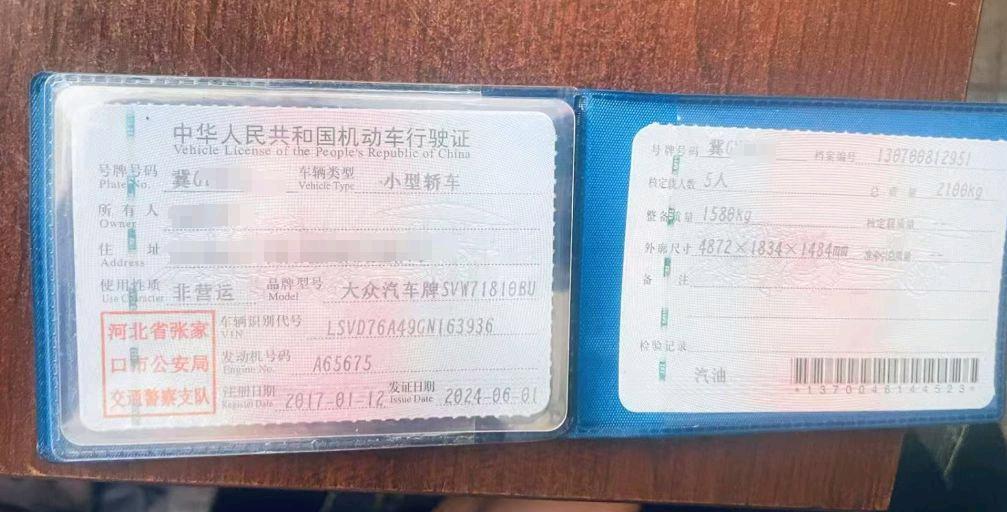 中华人民共和国机动车行驶证
Vehicle License of the People's Republic of China
号牌号码 冀G 车辆类型 小型轿车
Plate No. Vehicle Type
所有人
Owner
住址
Address
使用性质 非营运 品牌型号 大众汽车牌SVW71810BU
Use Character Model
车辆识别代号 LSVD76A49GN163936
VIN
发动机号码 A65675
Engine No.
注册日期 2017-01-12 发证日期 2024-06-01
Register Date Issue Date
河北省张家
口市公安局
交通警察支队
号牌号码 冀G 档案编号 130700812951
核定载人数 5人 总质量 2100kg
整备质量 1580kg 核定载质量 --
外廓尺寸 4872×1834×1484mm 准牵引总质量 --
备注
检验记录
汽油
*1370046144523*